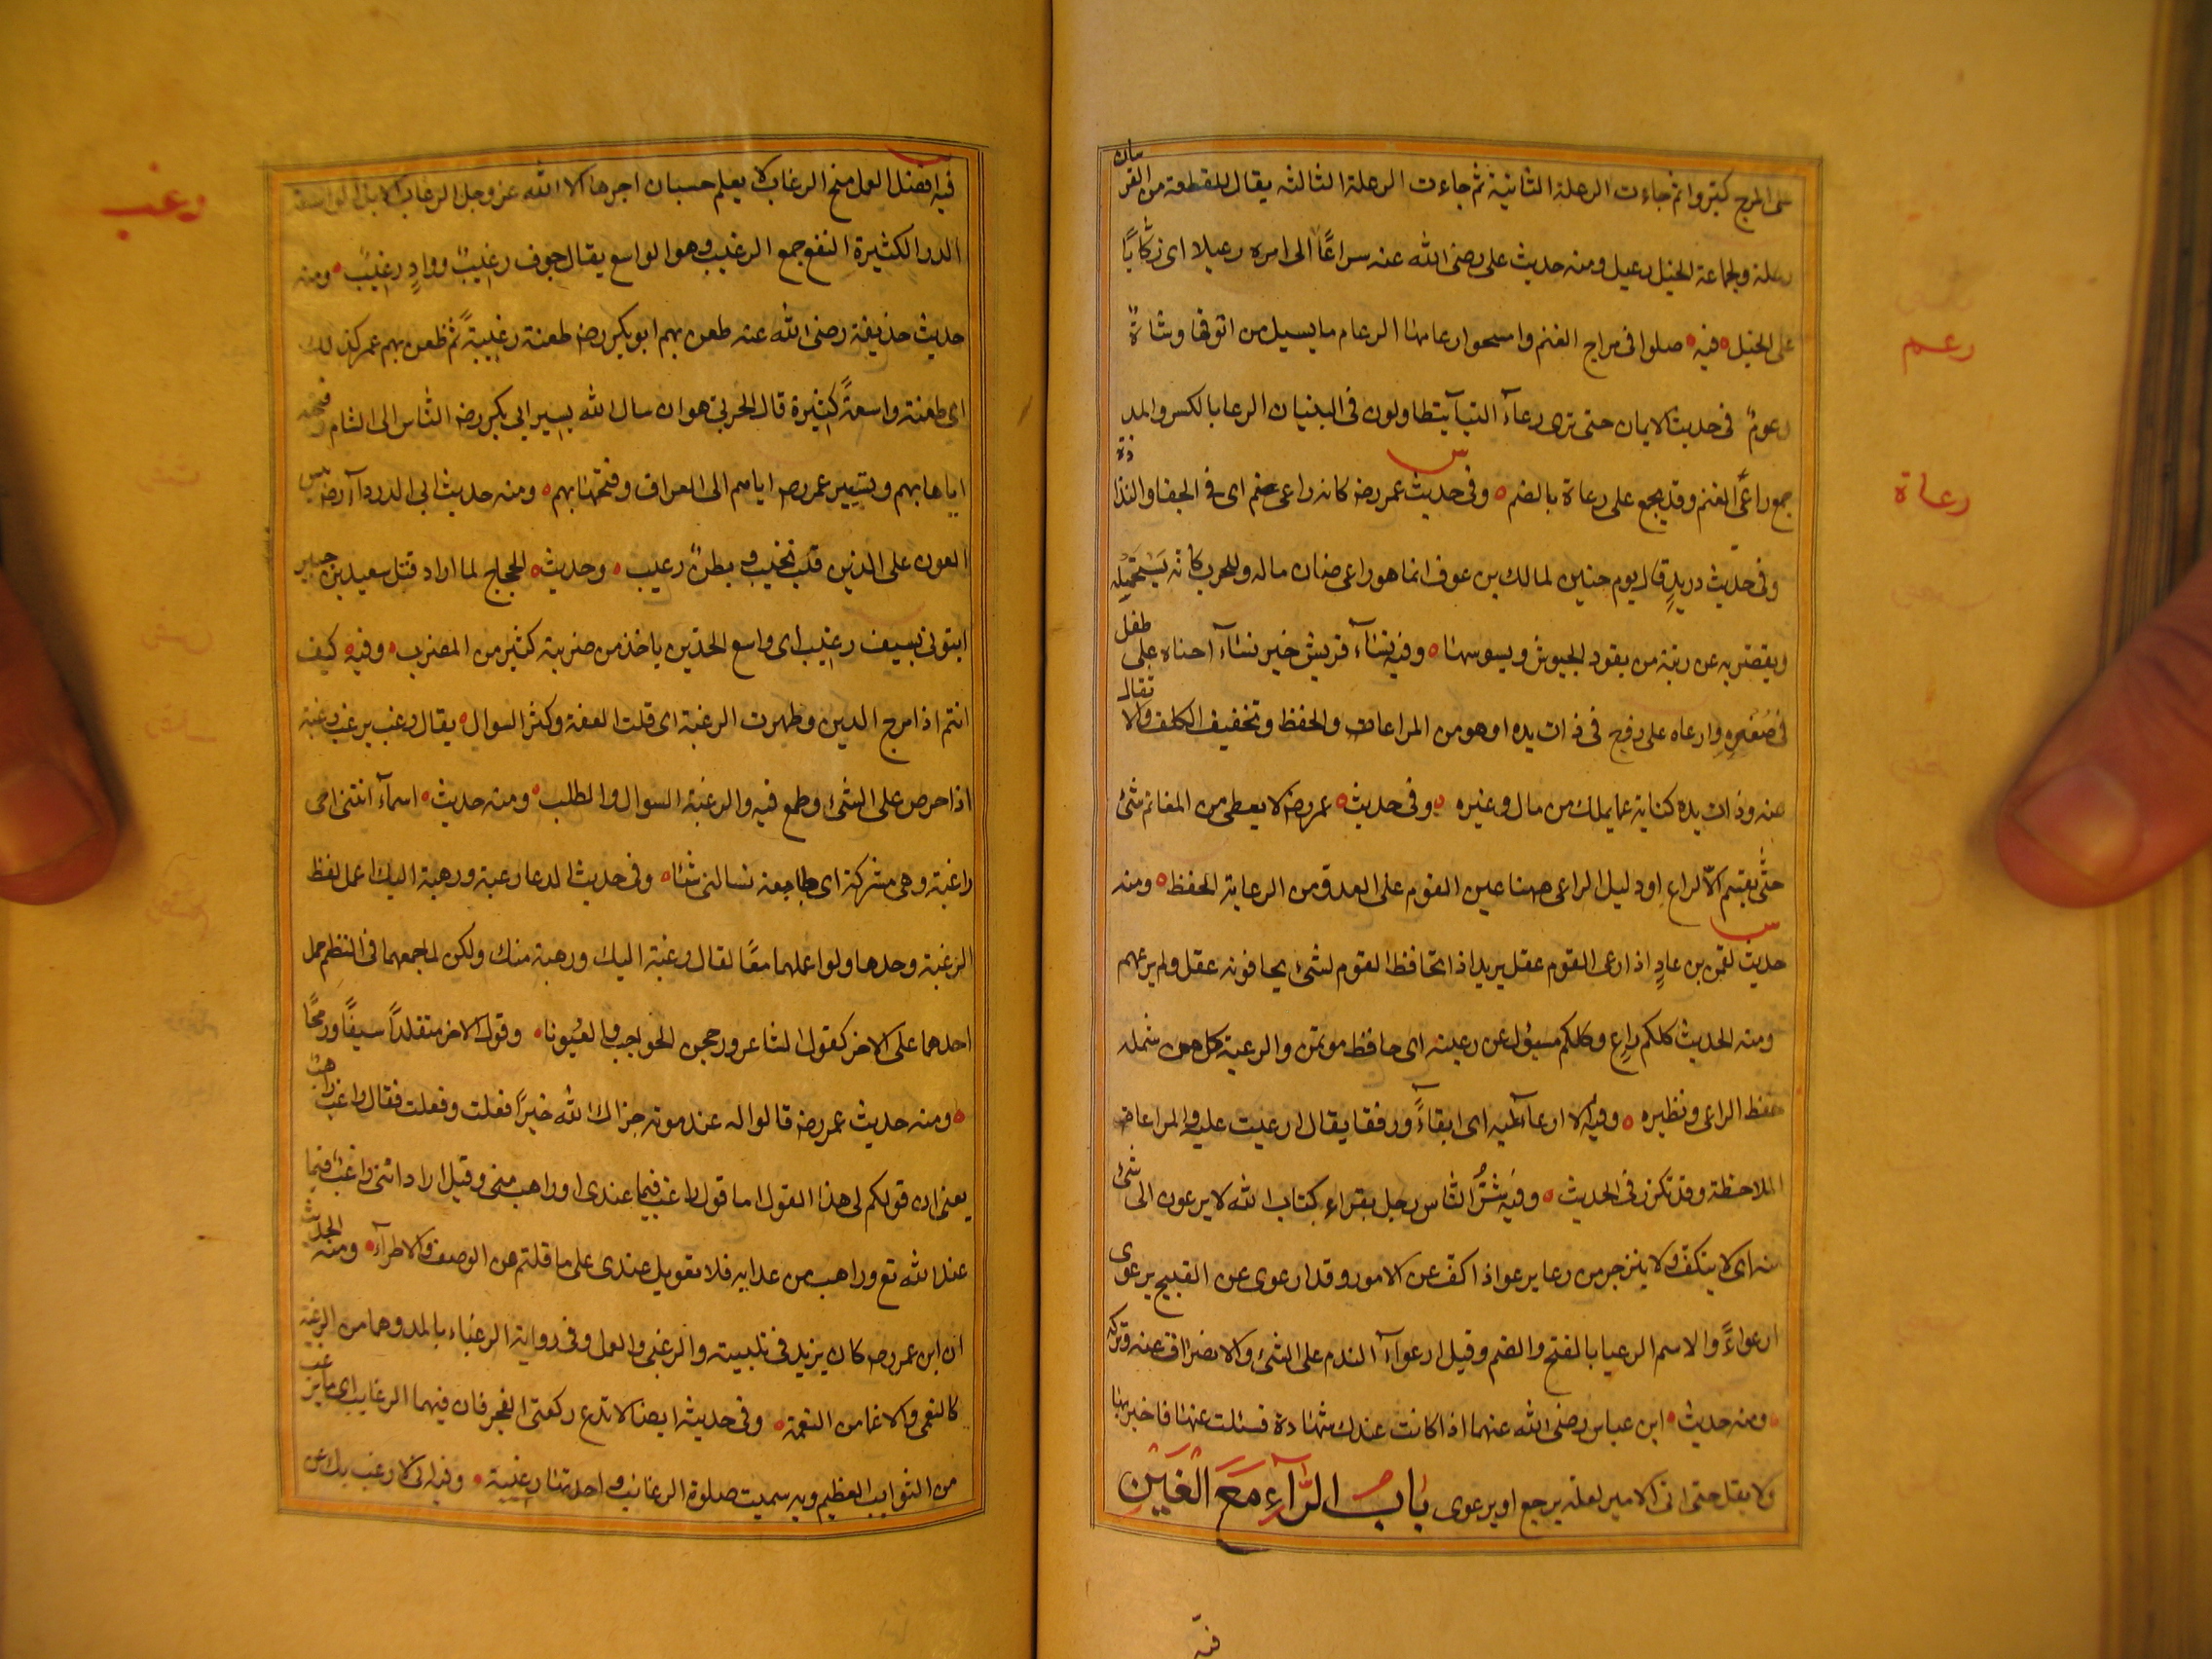 على المرج كبتروا ثم جاءت الرعلة الثانية ثم جاءت الرعلة الثالثه يقال للقطعة من الفرسان
رعلة ولجماعة الخيل رعيل ومنه حديث على رضى الله عنه سراعًا الى امره رعيلا اى ركّابًا
رعم
على الخيل فيه صلوا فى مراح الغنم وامسحوا رعامها الرعام ما يسيل من انوفها وشاة
رعوم فى حديث الايمان حتى ترى رعاء الشاء يتطاولون فى البنيان الرعا بالكسر والمد
رعاة
جمع راعى الغنم وقد يجمع على رعاة بالضم وفى حديث عمر رضه كانه راعى غنم اى فى الجفا والبذاذة
وفى حديث دريدٍ قال يوم حنين لمالك بن عوف انما هو راعى ضان ماله وللحرب كانه يستجهله
ويقصر به عن رتبة من يقود الجيوش ويسوسها وفيه نساء قريش خير نساء احناه على طفل
فى صغره وارعاه على زوج فى ذات يده او هو من المراعات والحفظ وتخفيف الكلف والاثقال
عنه وذات يده كناية عما يملك من مال وغيره وفى حديث عمر رضه لا يعطى من المغانم شئ
حتّى يقسم الّا لراعٍ او دليل الراعى ههنا عين القوم على العدو من الرعاية الحفظ ومنه
حديث لقمن بن عادٍ اذا رعى القوم غفل يريد اذا تحافظ القوم لشئ يخافونه غفل ولم يرعهم
ومنه الحديث كلكم راعٍ وكلكم مسؤل عن رعيته اى حافظ موتمن والرعية كل من شمله
حفظ الراعى ونظيره وفيه الا ارعاء عليه اى ابقاءً ورفقا يقال ارعيت عليه والمراعاة
الملاحظة وقد تكرر فى الحديث وفيه شرُّ الناس رجل يقراء كتاب الله لا يرعوى الى شئ
منه اى لا ينكف ولا ينزجر من رعا يرعو اذا كف عن الامور وقد ارعوى عن القبيح يرعوى
ارعواءً والاسم الرعيا بالفتح والضم وقيل ارعواء الندم على الشئ والانصراف عنه وتركه
ومنه حديث ابن عباس رضى الله عنهما اذا كانت عندك شهادة فسئلت عنها فاخبر بها
ولا تقل حتى اتى الامير لعله يرجع او يرعوى باب الرّاء مع الغين
فيه
رغب
فيه افضل العمل منح الرغاب لا يعلم حسبان اجرها الا الله عز وجل الرغاب الابل الواسعة
الدر الكثيرة النفع جمع الرغيب وهو الواسع يقال جوف رغيبٌ ووادٍ رغيبٌ ومنه
حديث حذيفة رضى الله عنه طعن بهم ابو بكر رضه طعنة رغيبةً ثم ظعن بهم عمر كذلك
اى طعنة واسعةً كثيرة قال الحربى هو ان سال الله بسير ابى بكر رضه الناس الى الشام فتحه
اياها بهم وبتسيير عمر رضه اياهم الى العراق وفتحها بهم ومنه حديث ابى الدرداء رضه بئس
العون على الدين قلب نخيب وبطنٌ رغيب وحديث الحجاج لما اراد قتل سعيد بن جبير
ايتونى بسيف رغيب اى واسع الحدّين ياخذ من ضربته كثير من المضرب وفيه كيف
انتم اذا مرج الدين وظهرت الرغبة اى قلت العفة وكثر السوال يقال رغب يرغب رغبة
اذا حرص على الشئ وطمع فيه والرغبة السوال والطلب ومنه حديث اسماء اتتنى امى
راغبة وهى مشركة اى طامعة تسالنى شئا وفى حديث الدعا رغبة ورهبة اليك اعمل لفظ
الرغبة وحدها ولو اعملهما معًا لقال رغبة اليك ورهبة منك ولكن لما جمعهما فى النظم حمل
احدهما على الاخر كقول الشاعر وزججن الحواجب والعُيونا وقول الاخر متقلداً سيفًا ورمحًا
ومنه حديث عمر رضه قالوا له عند موته جزاك الله خيرًا فعلت وفعلت فقال راغب وراهب
يعنى ان قولكم لى هذا القول اما قول راغب فيما عندى او راهب منى وقيل اراد اننى راغب فيما
عند الله تع وراهب من عذابه فلا تعويل عندى على ما قلتم من الوصف والاطراء ومنه الحديث
ان ابن عمر رضه كان يزيد فى تلبيته والرغبى والعمل وفى رواية الرغباء بالمد وهما من الرغبة
كالنعمى والنعما من النعمة وفى حديثه ايضا لا تدع ركعتى الفجر فان فيهما الرغايب اى ما يرغب
من الثواب العظيم وبه سميت صلوة الرغائب واحدتها رغيبة وفيه انى لا رغب بك عن